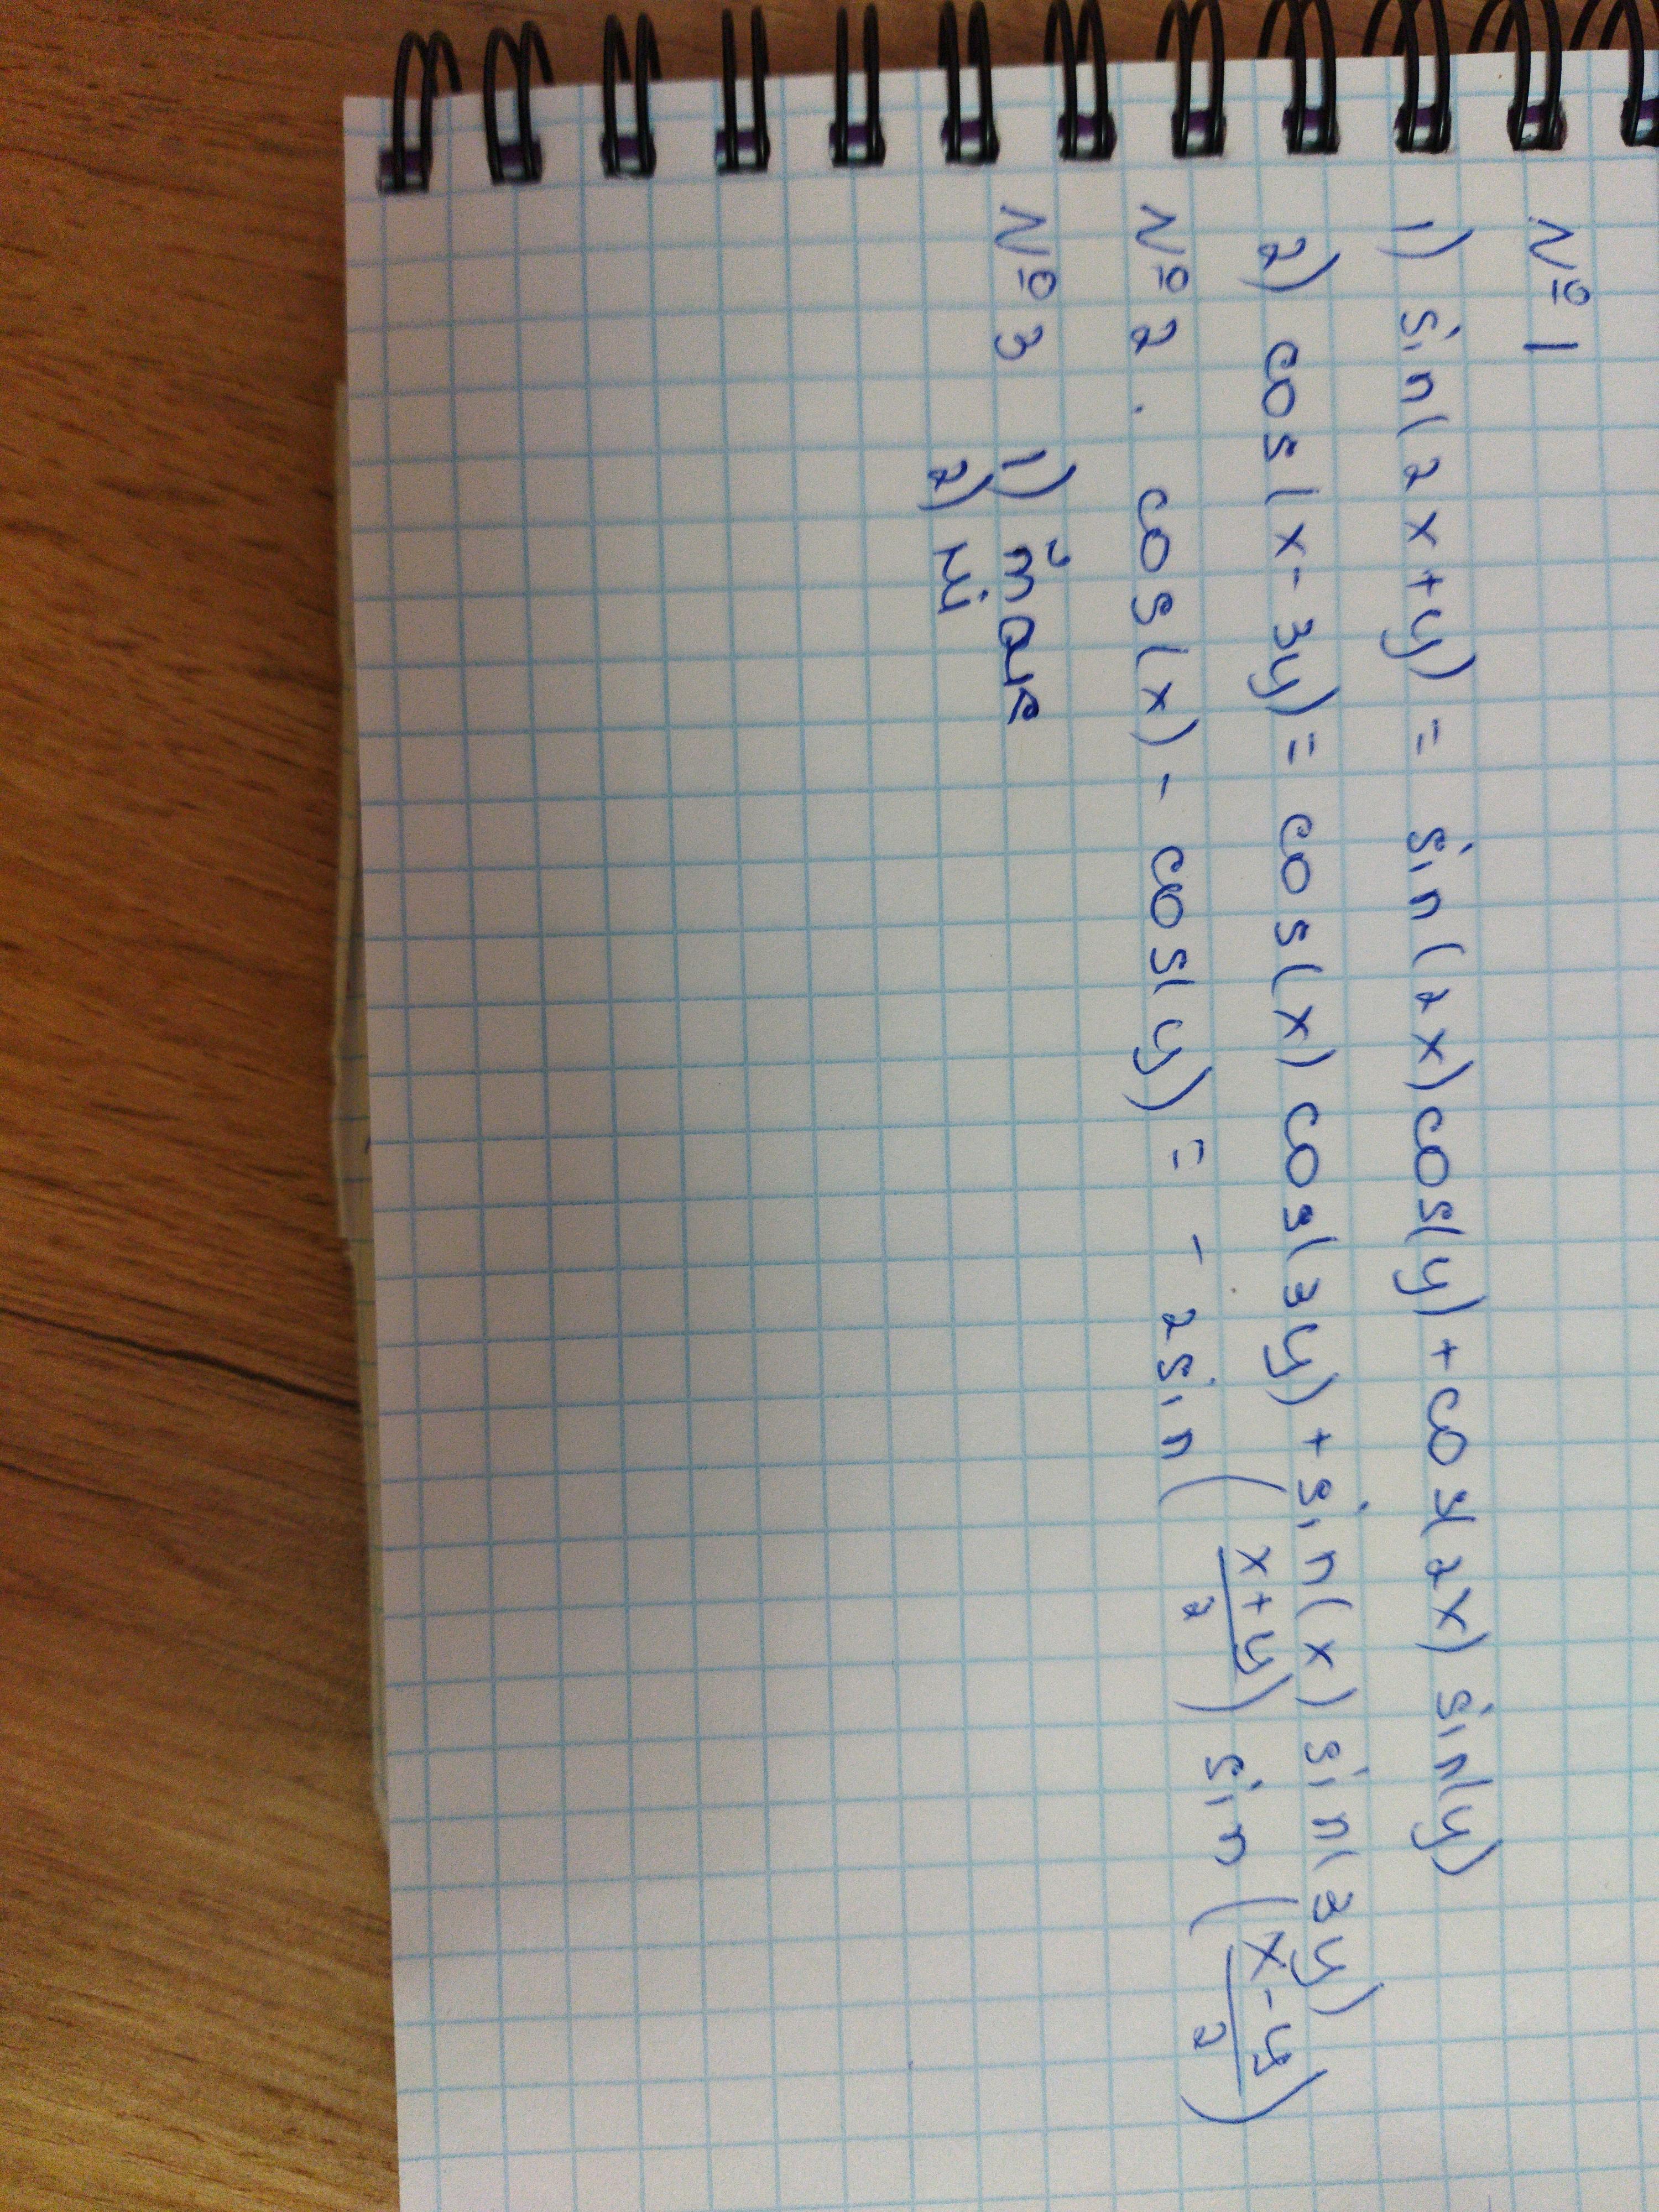 № 1
1) sin(2x+y) = sin(2x)cos(y)+cos(2x) sin(y)
2) cos(x-3y) = cos(x) cos(3y)+sin(x) sin(3y)
№ 2. cos(x) - cos(y) = - 2sin(x+y/2) sin(x-y/2)
№ 3 1) так
2) ні